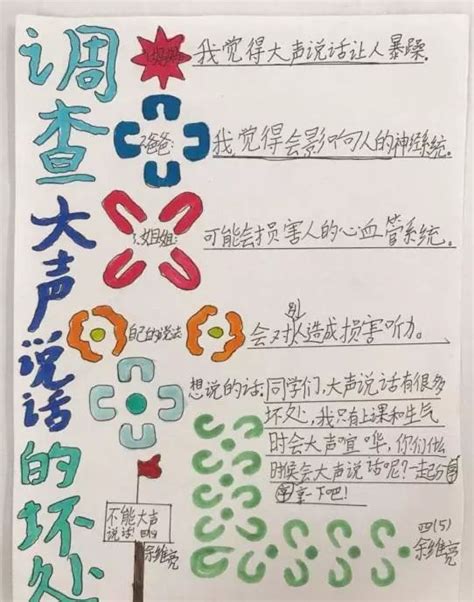 调查大声说话的坏处
妈妈:我觉得大声说话让人暴躁.
爸爸:我觉得会影响人的神经系统.
姐姐:可能会损害人的心血管系统.
自己的说法 会对别人造成损害听力.
想说的话:同学们,大声说话有很多
坏处,我只有上课和生气
时会大声喧哗,你们什么
时候会大声说话呢?一起分
享下吧!
不能大声
说话!
余维亮
四(5)
余维亮